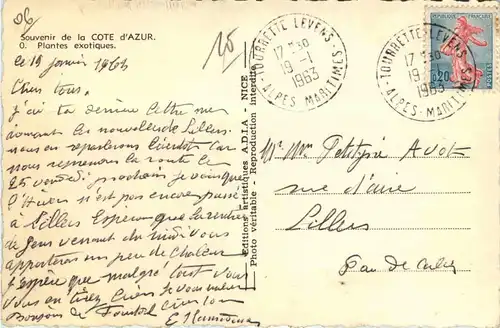 06
Souvenir de la COTE d'AZUR.
O. Plantes exotiques.
le 19 janvier 1963
Chers tous,
J'ai ta dernière lettre me
donnant les nouvelles de Lillers
nous en reparlerons bientôt car
nous reprenons la route le
25 vendredi prochain je vois que
l'hiver n'est pas encore passé
à Lillers Espérons que la rentrée
de gens venant du midi vous
apportera un peu de chaleur
J'espère que malgré tout vous
vous en tirez bien
Bonjour de
Editions artistiques A.D.I.A. - NICE
Photo véritable - Reproduction interdite
TOURRETTE LEVENS
17 H 30
19 - 1
1963
ALPES MARITIMES
TOURRETTE LEVENS
17 H 30
19 - 1
1963
ALPES MARITIMES
REPUBLIQUE FRANCAISE
0,20
Mr Mme Petitpré Avot
rue d'aire
Lillers
Pas de Calais